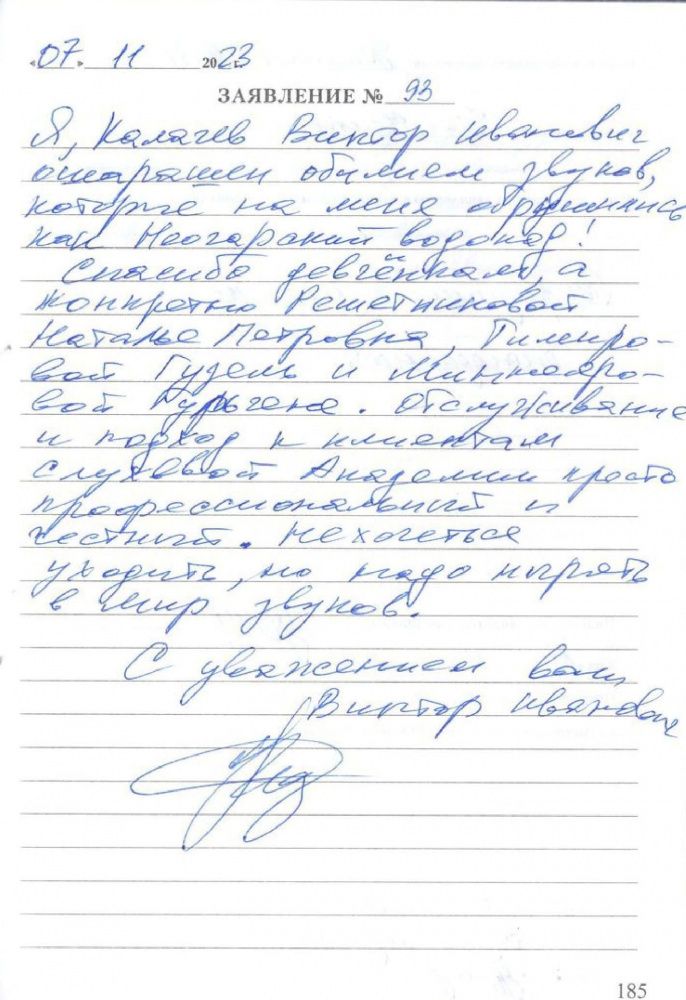 «07» 11 2023 г.
ЗАЯВЛЕНИЕ № 93
Я, Калачев Виктор Иванович
ошарашен обилием звуков,
которые на меня обрушились
как Неогарский водопад!
Спасибо девчёнкам, а
конкретно Решетниковой
Наталье Петровна, Тимиро-
вой Гузель и Минниаро-
вой Гульгена. Отслуживание
и подход к клиентам
слуховой Академии просто
профессиональный и
честный. Нехочеться
уходить, но надо нырять
в мир звуков.
С уважением ваш
Виктор Иванович
185